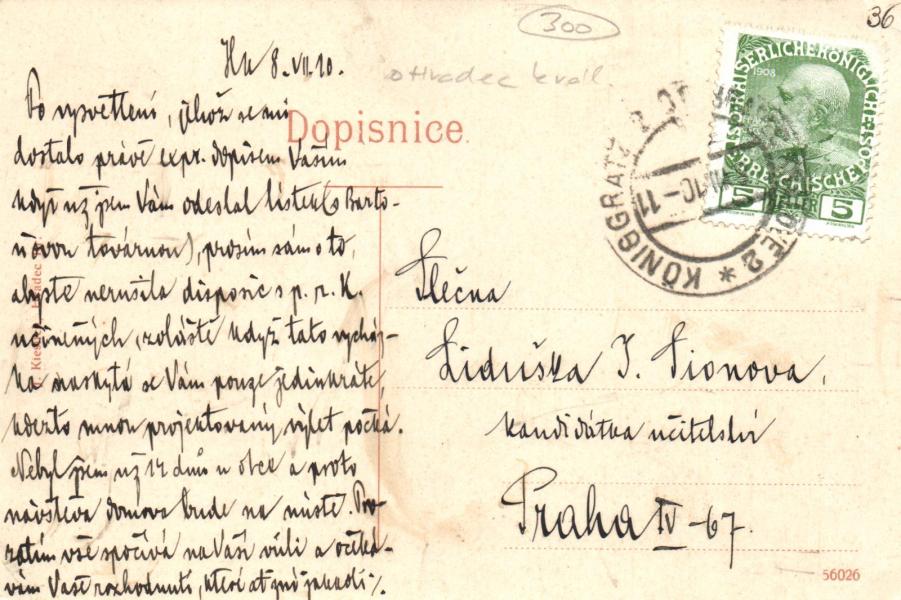 36
300
Hk 8. VII. 10.
o Hradec král.
Po vysvětlení, jehož se mi
Dopisnice.
dostalo právě expr. dopisem Vaším
když už jsem Vám odeslal lístek (s Barto-
ňovou továrnou), prosím sám o to,
abyste nerušila disposic s p. r. K.
učiněných, zvláště když tato vycház-
ka naskytá se Vám pouze jedinkráte,
kdežto mnou projektovaný výlet počká.
Nebyl jsem už 14 dnů u otce a proto
návštěva domova bude na místě. Pro-
zatím vše spočívá na Vaší vůli a očeká-
vám Vaše rozhodnutí, které ať zní jakkoli
1908
KAISERLICHE KÖNIGLICHE
ÖSTERREICHISCHE POST
5 HELLER 5
KÖNIGGRÄTZ 2
Slečna
Liduška J. Sionova,
kandidátka učitelství
Praha IV - 67.
56026